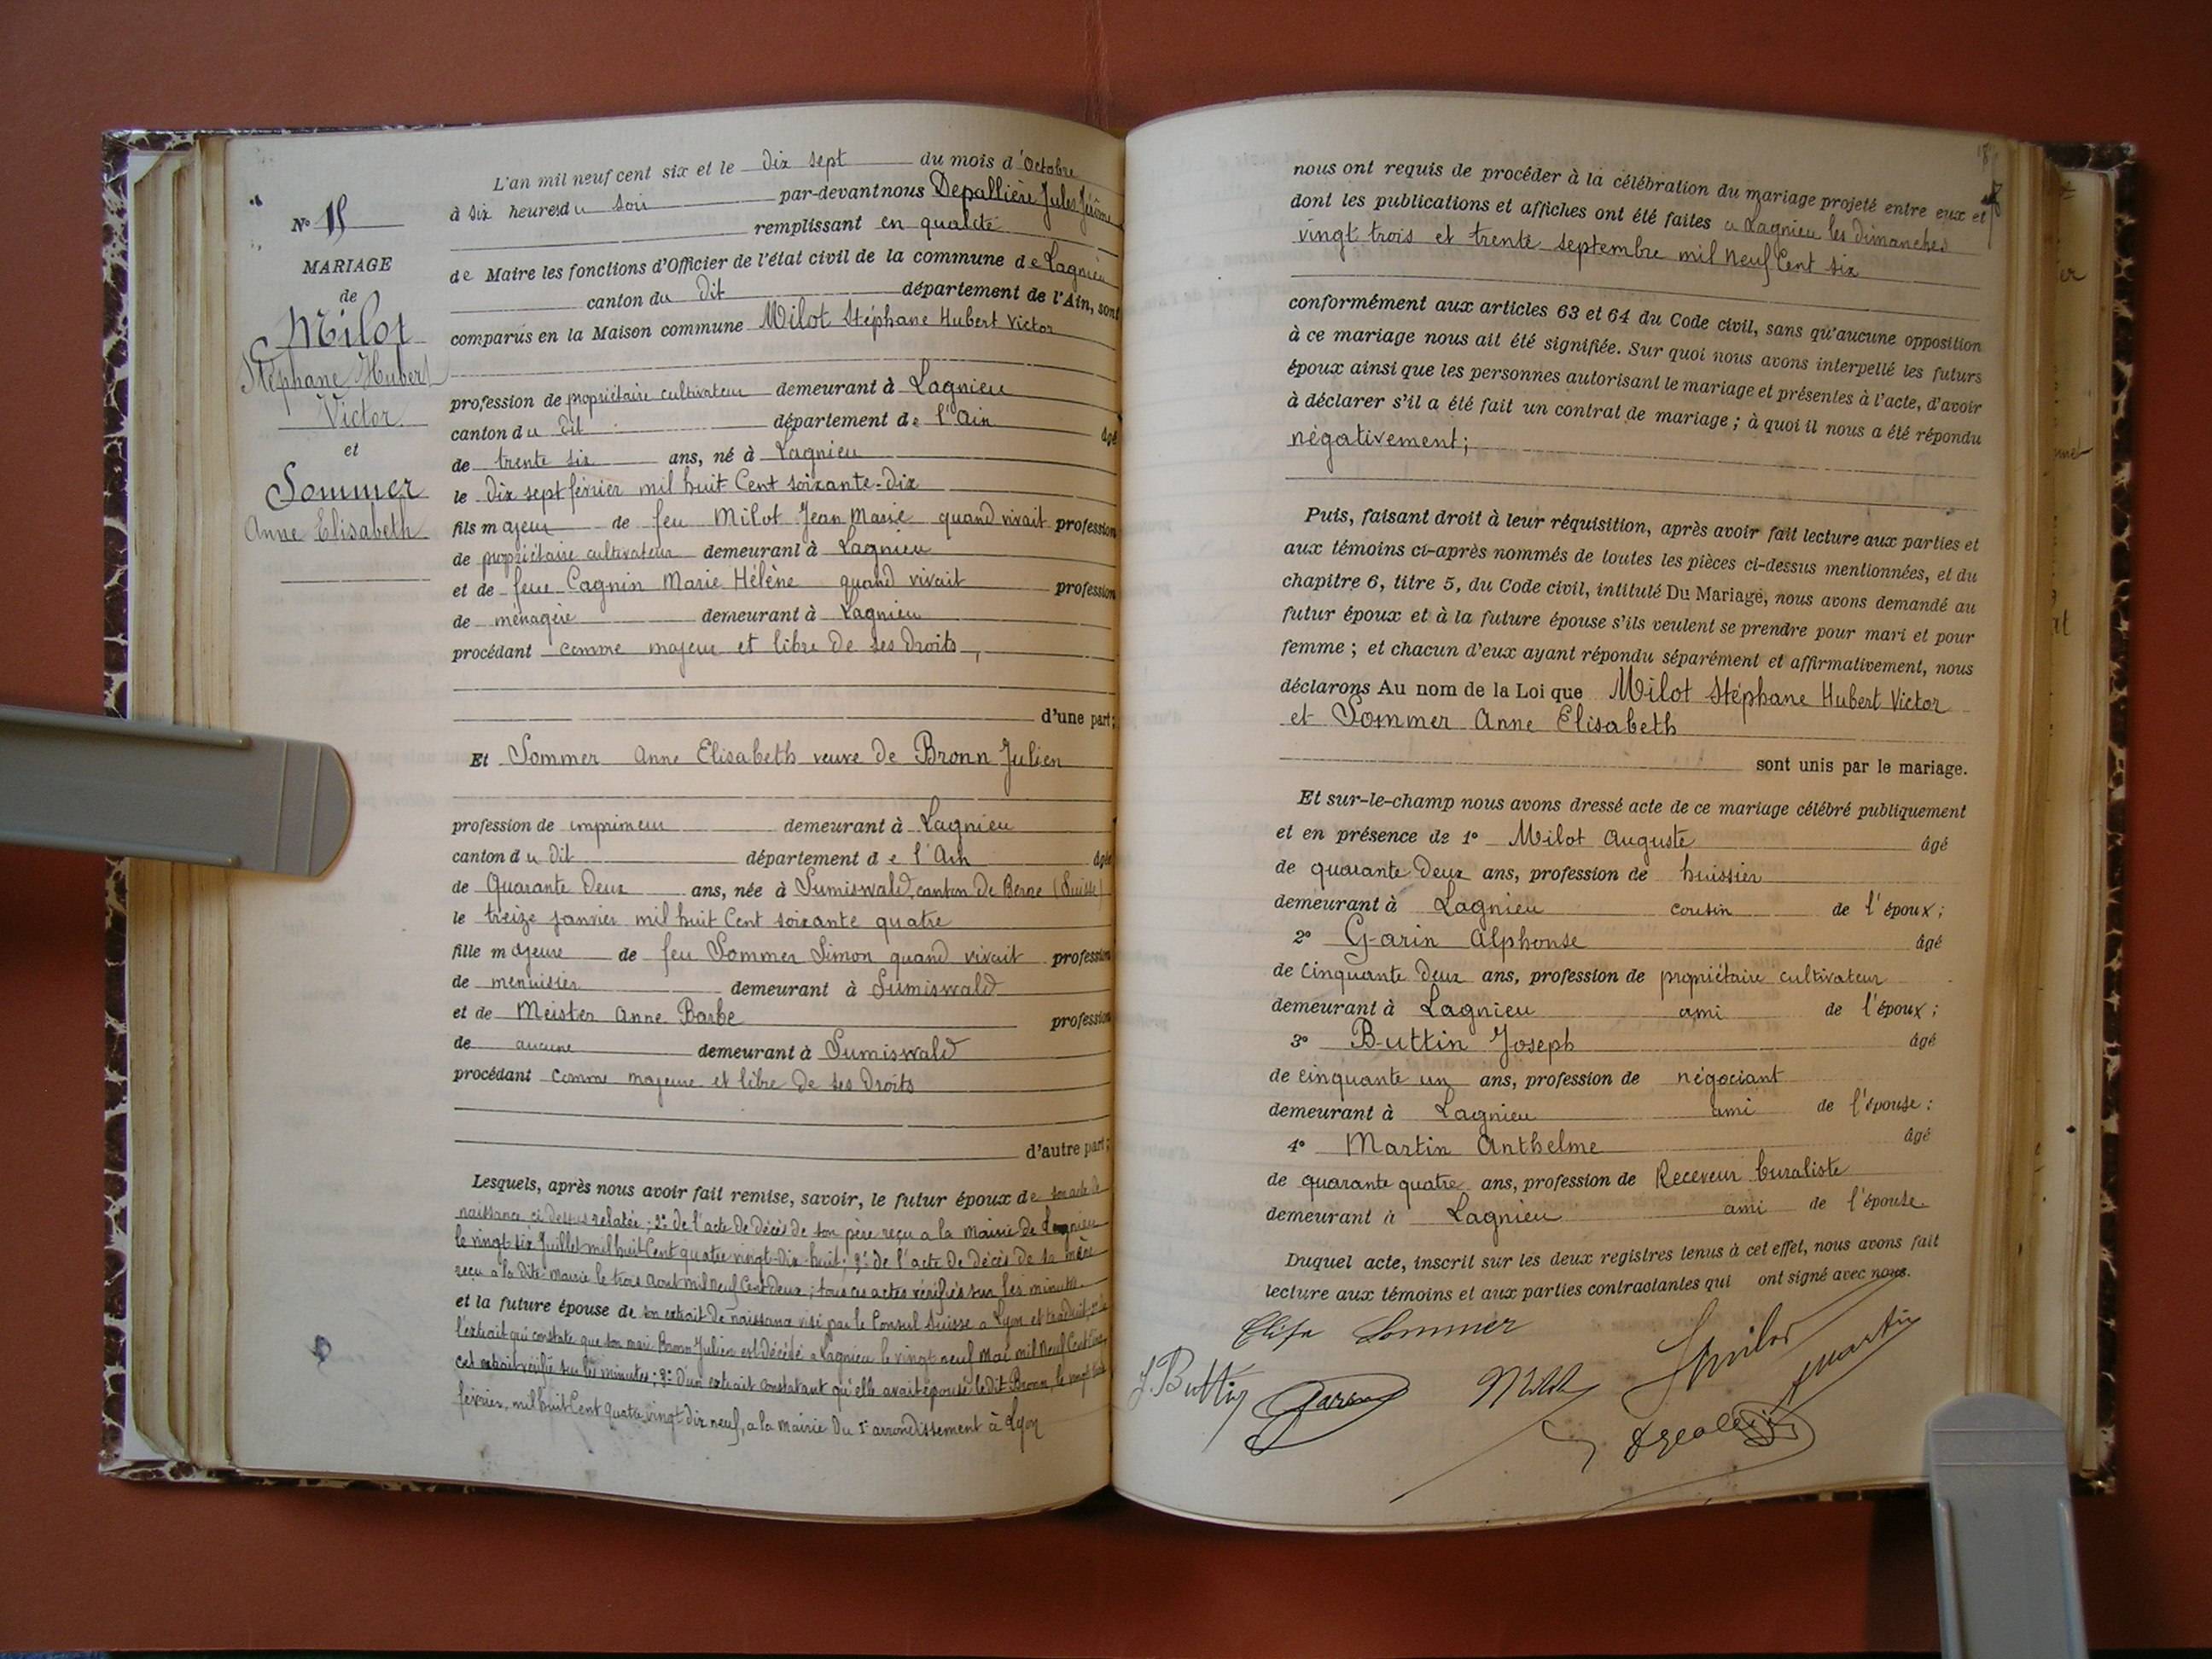 N° 15
MARIAGE
de
Milot
Stéphane Hubert
Victor
et
Sommer
Anne Elisabeth
L'an mil neuf cent six et le dix sept du mois d'Octobre
à six heures du soir par-devant nous Depallière Jules Jérôme
remplissant en qualité
de Maire les fonctions d'Officier de l'état civil de la commune de Lagnieu
canton du dit département de l'Ain, sont
comparus en la Maison commune Milot Stéphane Hubert Victor
profession de propriétaire cultivateur demeurant à Lagnieu
canton du dit département de l'Ain âgé
de trente six ans, né à Lagnieu
le dix sept février mil huit Cent soixante-dix
fils majeur de feu Milot Jean Marie quand vivait profession
de propriétaire cultivateur demeurant à Lagnieu
et de feue Cagnin Marie Hélène quand vivait profession
de ménagère demeurant à Lagnieu
procédant comme majeur et libre de ses droits,
d'une part;
Et Sommer Anne Elisabeth veuve de Bronn Julien
profession de imprimeur demeurant à Lagnieu
canton du dit département de l'Ain âgée
de Quarante deux ans, née à Sumiswald, canton de Berne (Suisse)
le treize janvier mil huit Cent soixante quatre
fille majeure de feu Sommer Simon quand vivait profession
de menuisier demeurant à Sumiswald
et de Meister Anne Barbe profession
de aucune demeurant à Sumiswald
procédant comme majeure et libre de ses droits
d'autre part;
Lesquels, après nous avoir fait remise, savoir, le futur époux de son acte de
naissance ci dessus relatée; 2° de l'acte de décès de son père reçu a la mairie de Lagnieu
le vingt six Juillet mil huit Cent quatre vingt-dix-huit; 3° de l'acte de décès de sa mère
reçu a la dite mairie le trois Aout mil neuf Cent deux; tous ces actes vérifiés sur les minutes.
et la future épouse de son extrait de naissance visé par le Consul Suisse a Lyon et traduit;
l'extrait qui constate que son mari Bronn Julien est décédé a Lagnieu le vingt neuf Mai mil neuf Cent
cet extrait vérifié sur les minutes; 3° d'un extrait constatant qu'elle avait épousé le dit Bronn, le vingt
février, mil huit Cent quatre vingt dix neuf, a la mairie du arrondissement à Lyon
nous ont requis de procéder à la célébration du mariage projeté entre eux et
dont les publications et affiches ont été faites a Lagnieu les dimanches
vingt trois et trente septembre mil neuf Cent six
conformément aux articles 63 et 64 du Code civil, sans qu'aucune opposition
à ce mariage nous ait été signifiée. Sur quoi nous avons interpellé les futurs
époux ainsi que les personnes autorisant le mariage et présentes à l'acte, d'avoir
à déclarer s'il a été fait un contrat de mariage; à quoi il nous a été répondu
négativement;
Puis, faisant droit à leur réquisition, après avoir fait lecture aux parties et
aux témoins ci-après nommés de toutes les pièces ci-dessus mentionnées, et du
chapitre 6, titre 5, du Code civil, intitulé Du Mariage, nous avons demandé au
futur époux et à la future épouse s'ils veulent se prendre pour mari et pour
femme; et chacun d'eux ayant répondu séparément et affirmativement, nous
déclarons Au nom de la Loi que Milot Stéphane Hubert Victor
et Sommer Anne Elisabeth
sont unis par le mariage.
Et sur-le-champ nous avons dressé acte de ce mariage célébré publiquement
et en présence de 1° Milot Auguste âgé
de quarante deux ans, profession de huissier
demeurant à Lagnieu cousin de l'époux;
2° Garin Alphonse âgé
de Cinquante deux ans, profession de propriétaire cultivateur
demeurant à Lagnieu ami de l'époux;
3° Buttin Joseph âgé
de cinquante un ans, profession de négociant
demeurant à Lagnieu ami de l'épouse;
4° Martin Anthelme âgé
de quarante quatre ans, profession de Receveur buraliste
demeurant à Lagnieu ami de l'épouse
Duquel acte, inscrit sur les deux registres tenus à cet effet, nous avons fait
lecture aux témoins et aux parties contractantes qui ont signé avec nous.
Elisa Sommer
S Milot
J. Buttin
Garin
Milot
Martin